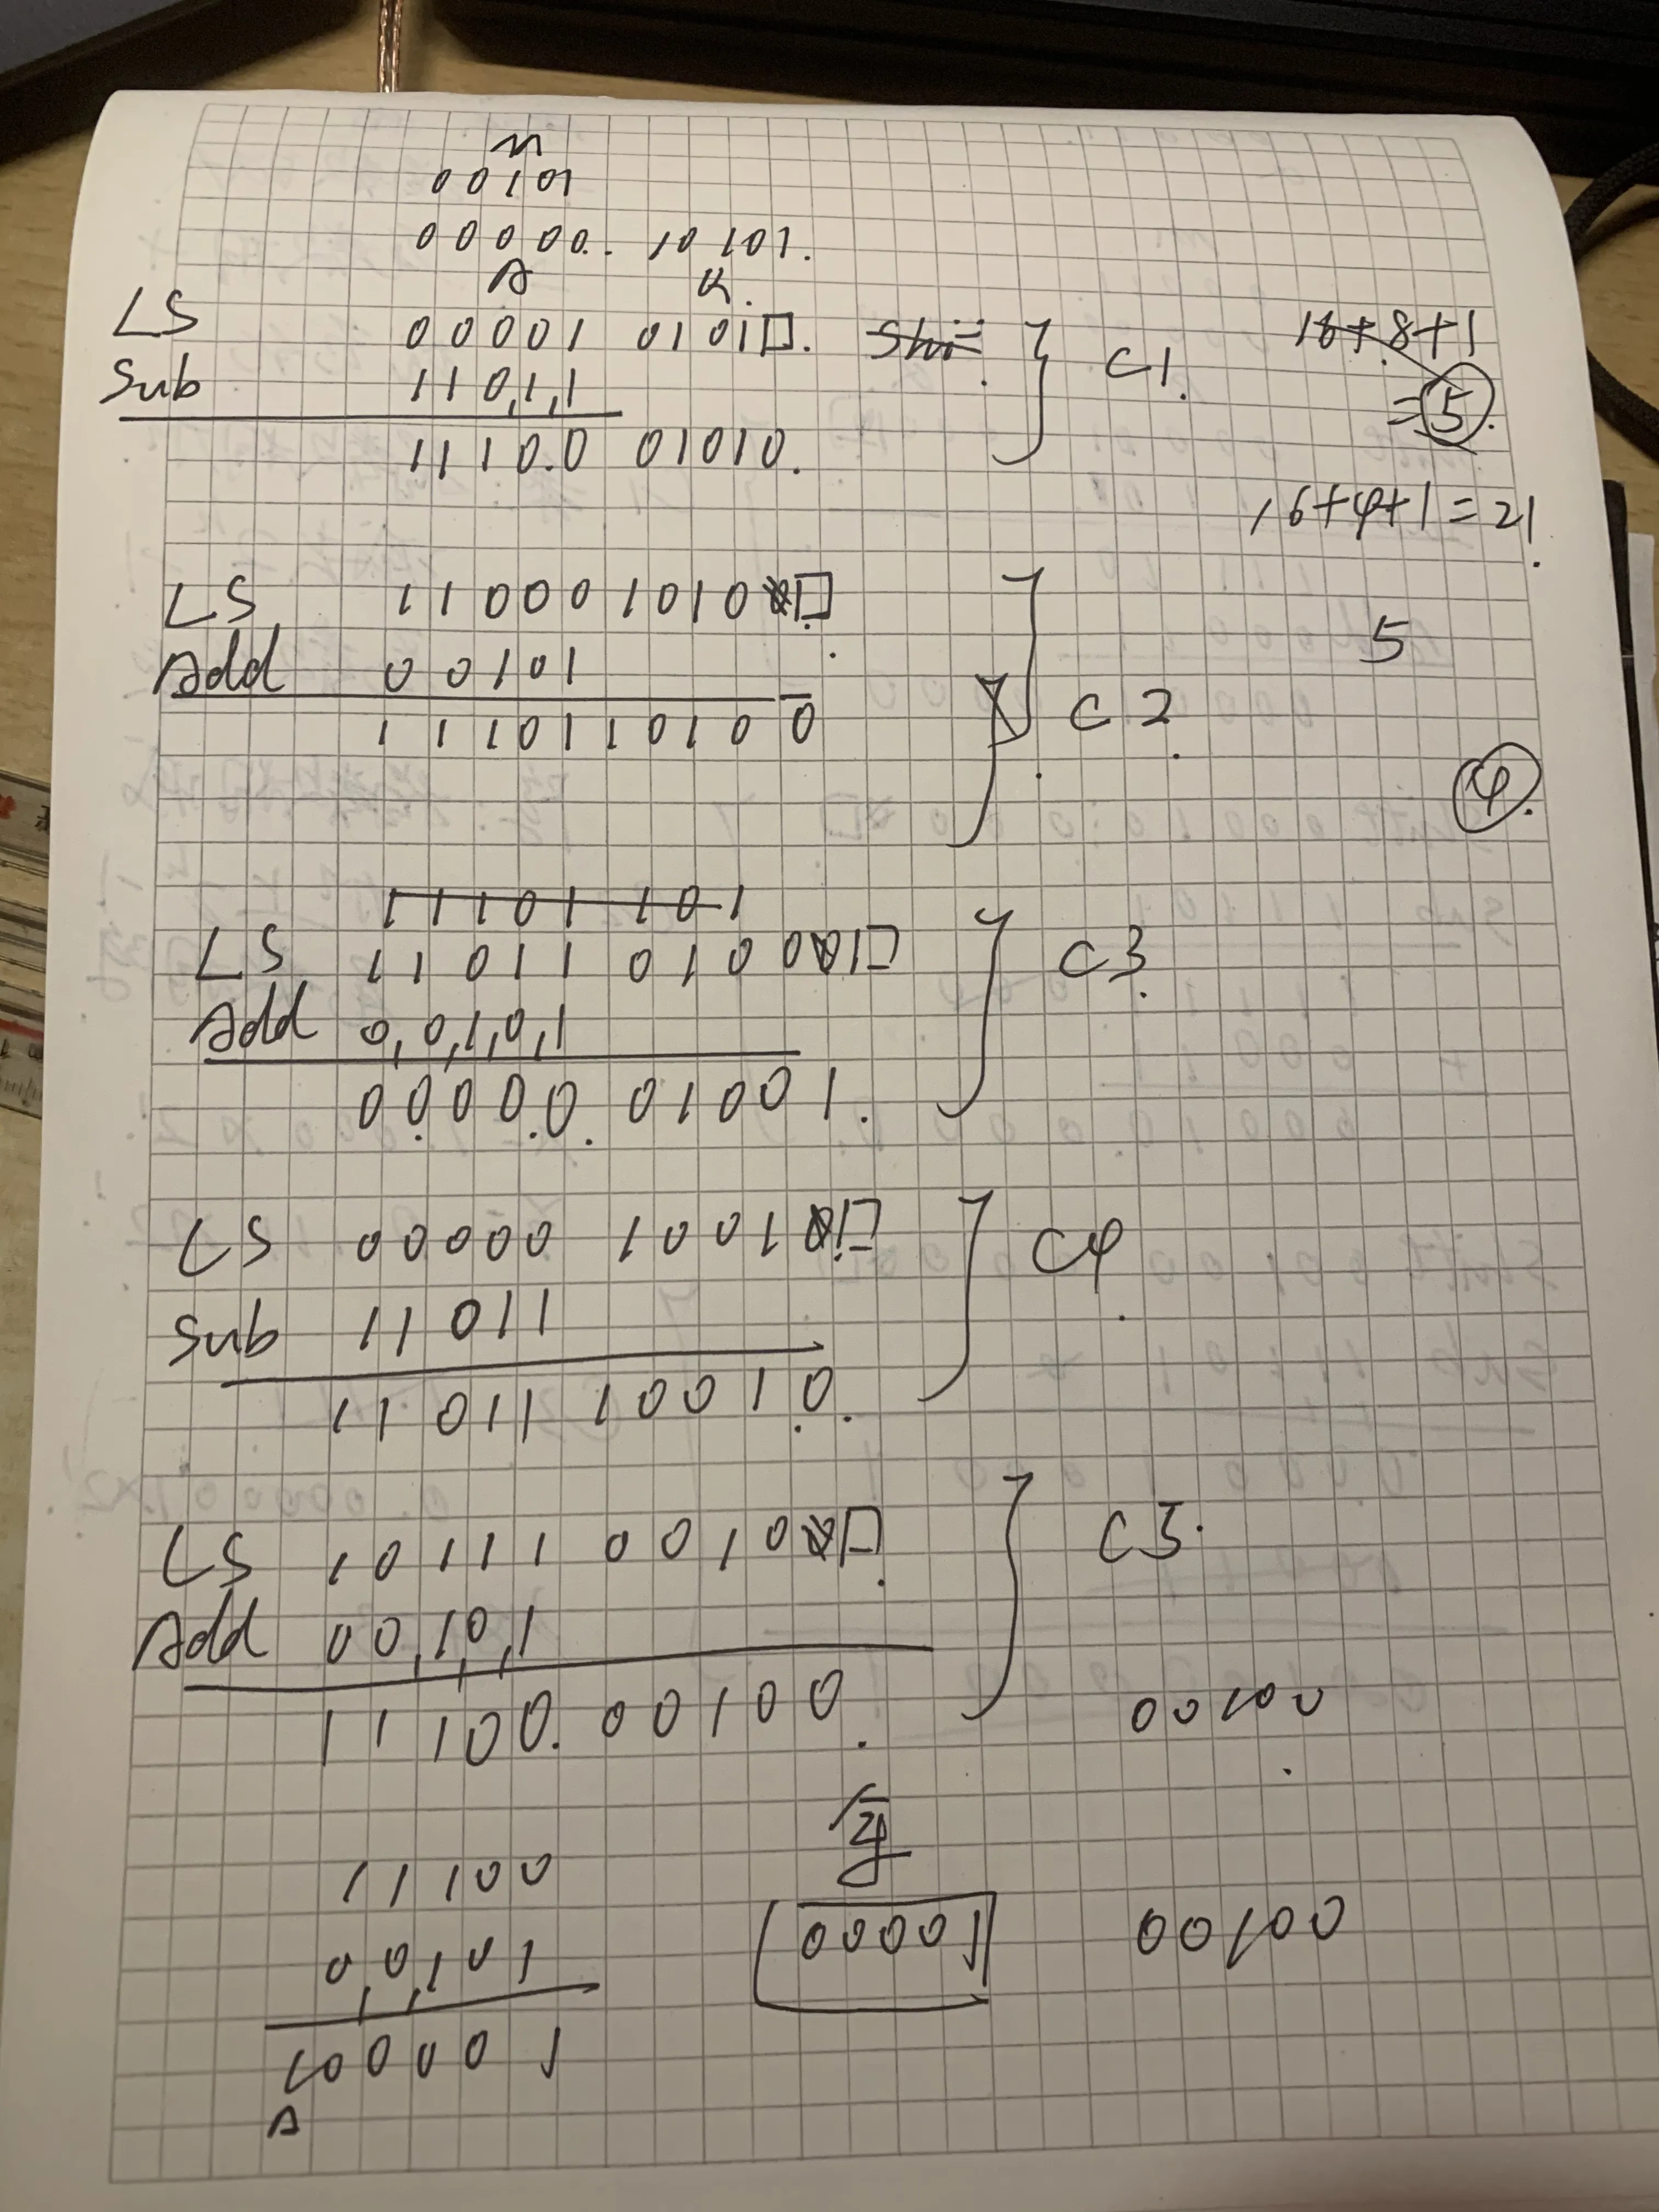 M
00101
00000 10101.
A Q.
LS 00001 0101□. C1. 16+8+1
Sub 11011 =5.
11100 01010.
16+4+1=21.
LS 11000 1010□
Add 00101 5
11101 10100 C2.
4.
1110110 1
LS 11011 0100□ C3.
Add 00101
00000. 01001.
LS 00000 1001□ C4.
Sub 11011
11011 10010.
LS 10111 0010□ C5.
Add 00101
11100. 00100. 00100
11100
00101 00001 00100
100001